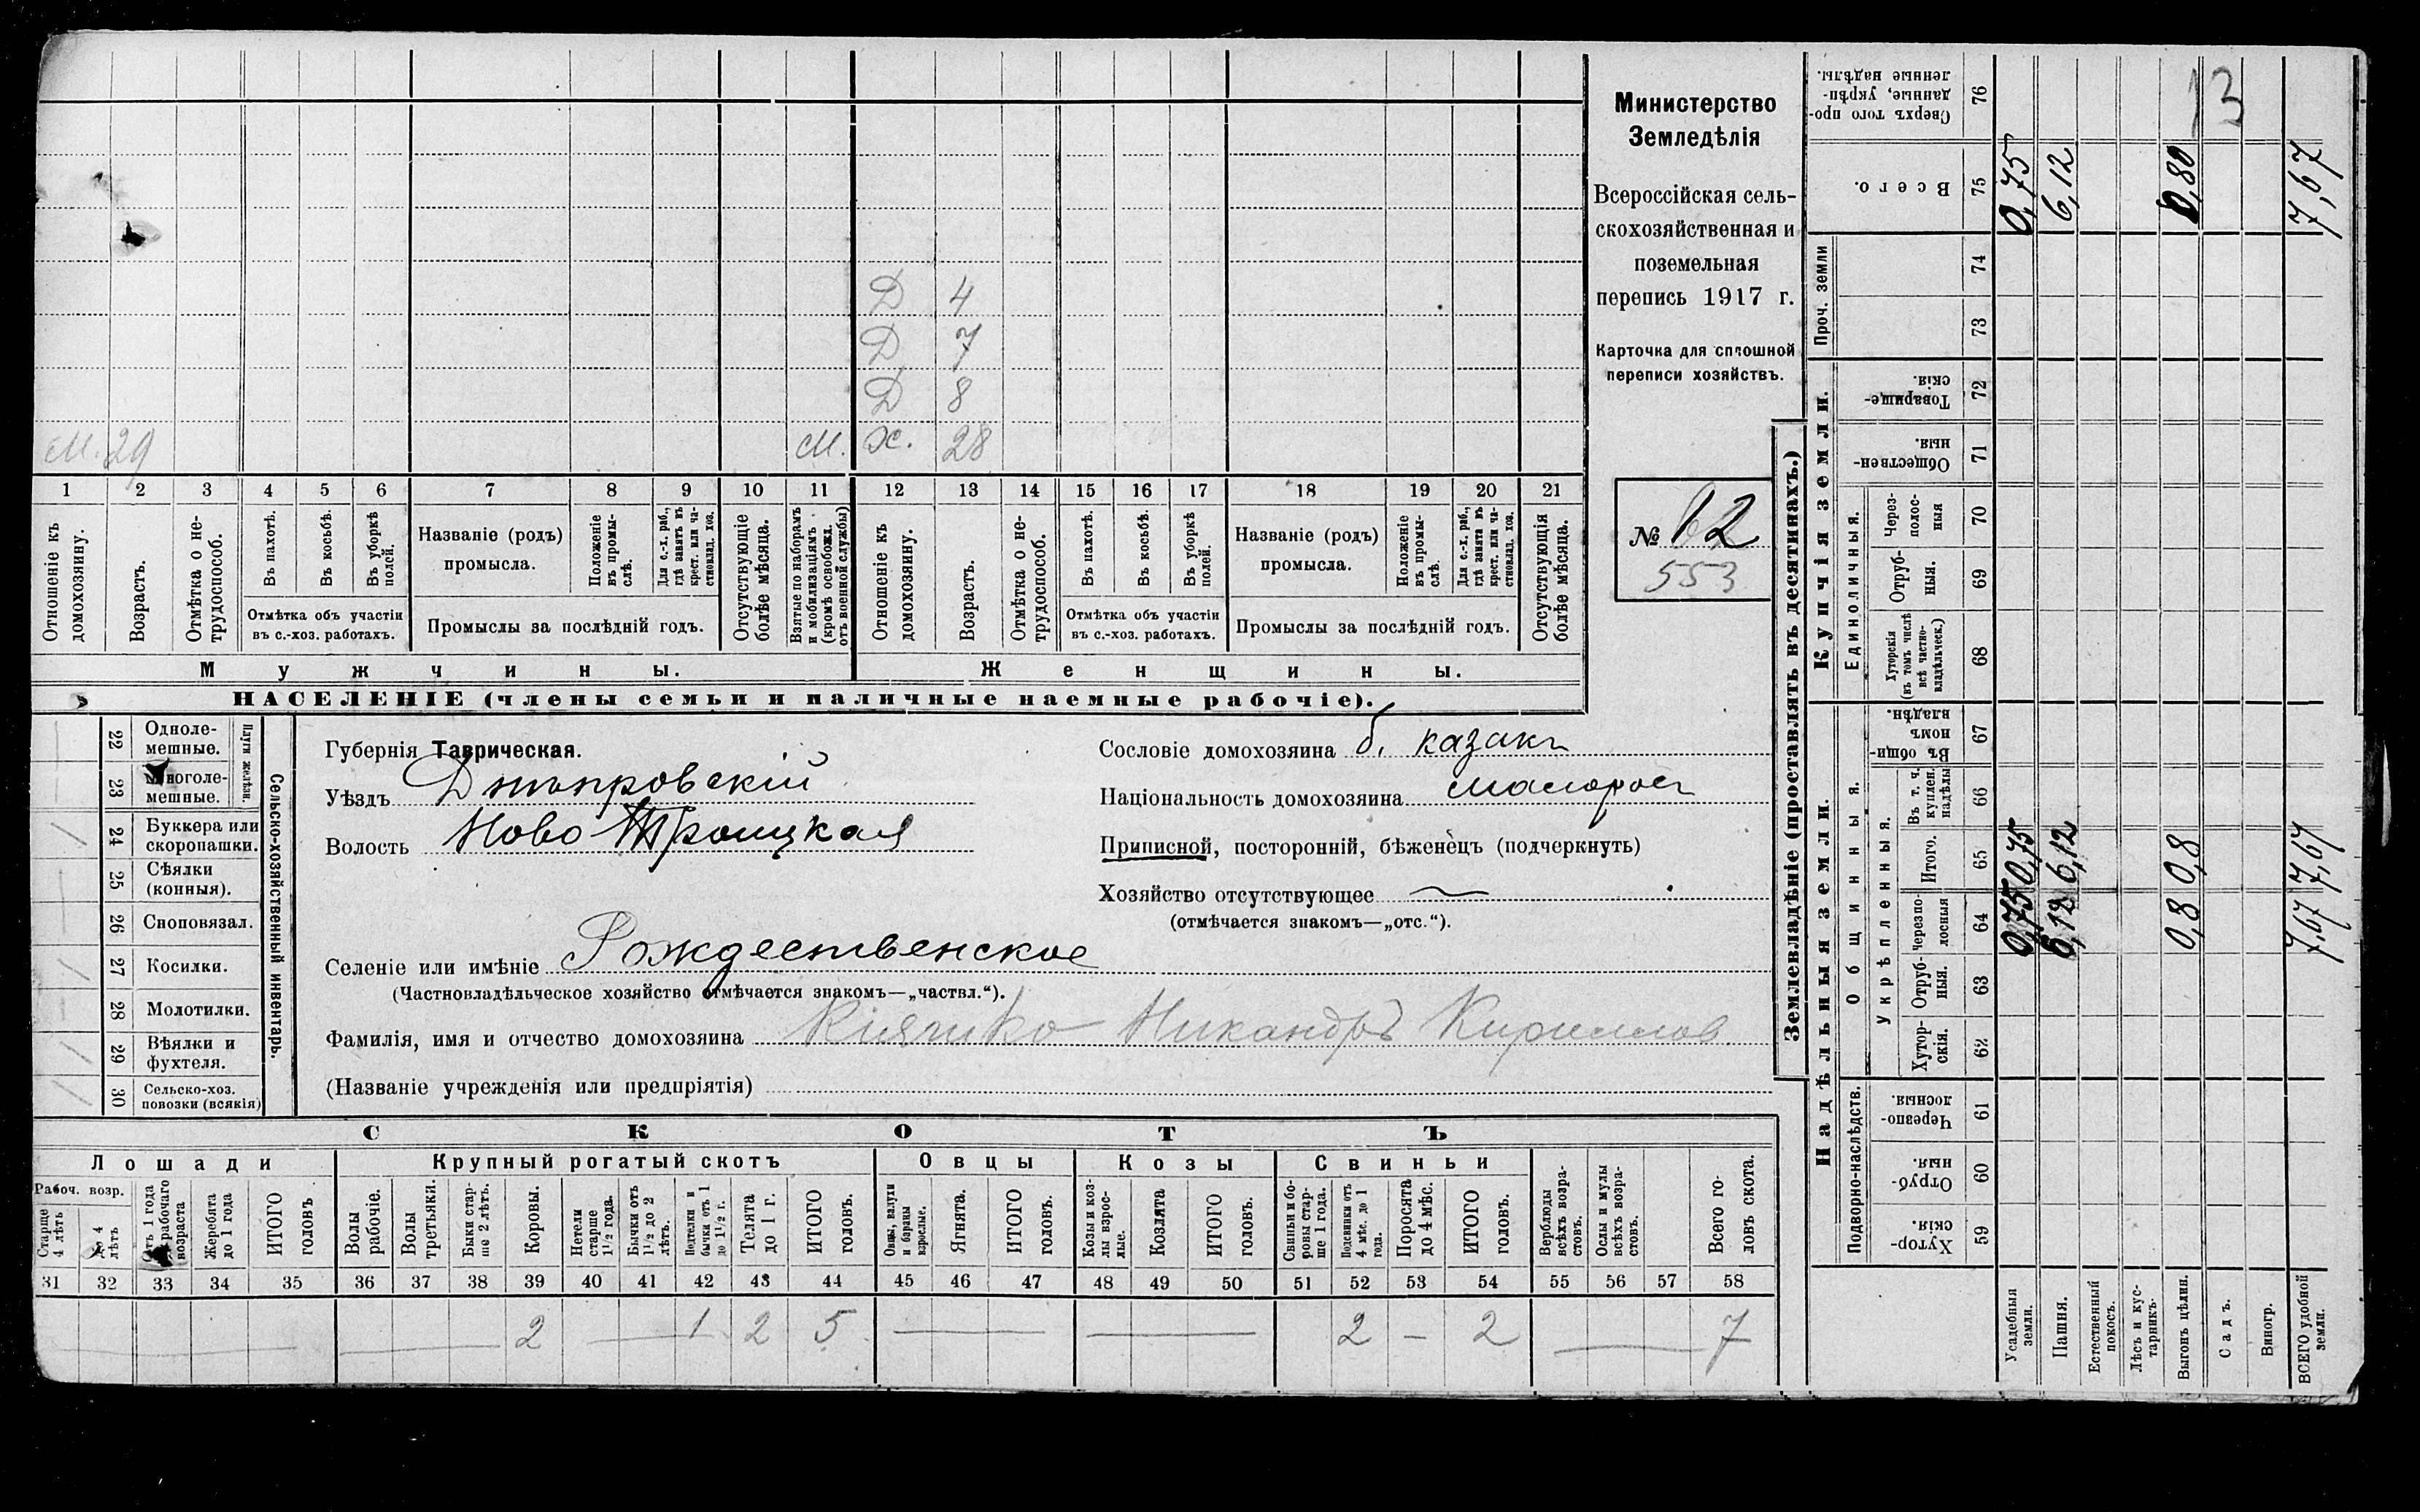 Д 4
Д 7
Д 8
М. 29 М. Ж. 28
1 2 3 4 5 6 7 8 9 10 11 12 13 14 15 16 17 18 19 20 21
Отношеніе къ домохозяину.
Возрастъ.
Отмѣтка о не-
трудоспособ.
Въ пахотѣ.
Въ косьбѣ.
Въ уборкѣ
полей.
Отмѣтка объ участіи
въ с.-хоз. работахъ.
Названіе (родъ)
промысла.
Положеніе
въ промы-
слѣ.
Для с.-х. раб.,
гдѣ занятъ въ
крест. или ча-
стновлад. хоз.
Промыслы за послѣдній годъ.
Отсутствующіе
болѣе мѣсяца.
Взятые по наборамъ
и мобилизаціямъ
(кромѣ освобожд.
отъ военной службы)
Отношеніе къ
домохозяину.
Возрастъ.
Отмѣтка о не-
трудоспособ.
Въ пахотѣ.
Въ косьбѣ.
Въ уборкѣ
полей.
Отмѣтка объ участіи
въ с.-хоз. работахъ.
Названіе (родъ)
промысла.
Положеніе
въ промы-
слѣ.
Для с.-х. раб.,
гдѣ занята въ
крест. или ча-
стновлад. хоз.
Промыслы за послѣдній годъ.
Отсутствующія
болѣе мѣсяца.
Мужчины.
Женщины.
НАСЕЛЕНІЕ (члены семьи и наличные наемные рабочіе).
Министерство
Земледѣлія
Всероссійская сель-
скохозяйственная и
поземельная
перепись 1917 г.
Карточка для сплошной
переписи хозяйствъ.
№ 62
553
Сельско-хозяйственный инвентарь.
Плуги желѣзн.
22 Однолe-
мешные.
23 Многоле-
мешные.
24 Буккера или
скоропашки.
25 Сѣялки
(конныя).
26 Сноповязал.
27 Косилки.
28 Молотилки.
29 Вѣялки и
фухтеля.
30 Сельско-хоз.
повозки (всякія)
Губернія Таврическая.
Уѣздъ Днѣпровскій
Волость Ново Троицкая
Сословіе домохозяина б. казакъ
Національность домохозяина малорос
Приписной, посторонній, бѣженецъ (подчеркнуть)
Хозяйство отсутствующее
(отмѣчается знакомъ—„отс.“).
Селеніе или имѣніе Рождественское
(Частновладѣльческое хозяйство отмѣчается знакомъ—„частвл.“).
Фамилія, имя и отчество домохозяина Никандръ Кириллов
(Названіе учрежденія или предпріятія)
СКОТЪ
Лошади
Крупный рогатый скотъ
Овцы
Козы
Свиньи
Рабоч. возр.
Старше
4 лѣтъ
До 4
лѣтъ
Отъ 1 года
до рабочаго
возраста
Жеребята
до 1 года
ИТОГО
головъ
Волы
рабочіе.
Волы
третьяки.
Быки стар-
ше 2 лѣтъ.
Коровы.
Нетели
старше
1½ года.
Бычки отъ
1½ до 2
лѣтъ.
Подтелки и
бычки отъ 1
до 1½ г.
Телята
до 1 г.
ИТОГО
головъ.
Овцы, валухи
и бараны
взрослые.
Ягнята.
ИТОГО
головъ.
Козы и коз-
лы взрос-
лые.
Козлята
ИТОГО
головъ.
Свиньи и бо-
ровы стар-
ше 1 года.
Подсвинки отъ
4 мѣс. до 1
года.
Поросята
до 4 мѣс.
ИТОГО
головъ.
Верблюды
всѣхъ возра-
стовъ.
Ослы и мулы
всѣхъ возра-
стовъ.
Всего го-
ловъ скота.
31 32 33 34 35 36 37 38 39 40 41 42 43 44 45 46 47 48 49 50 51 52 53 54 55 56 57 58
2 — 1 2 5 — — 2 — 2 — 7
Землевладѣніе (проставлять въ десятинахъ.)
Надѣльныя земли.
Купчія земли.
Проч. земли
Подворно-наслѣдств.
Общинныя.
Укрѣпленныя.
Единоличныя.
Сверхъ того про-
данные, укрѣп-
ленные надѣлы. 76
13
Всего. 75 0,75 6,12 0,80 7,67
74
73
Товарище-
скія. 72
Обществен-
ныя. 71
Черезполос-
ныя 70
Отруб-
ныя. 69
Хуторскія
(въ томъ числѣ
всѣ частно-
владѣльческ.) 68
Въ общин-
номъ
владѣн. 67
Въ т. ч.
куплен.
надѣлы 66
Итого. 65 0,75 6,12 0,8 7,67
черезпо-
лосныя 64 0,75 6,12 0,8 7,67
Отруб-
ныя. 63
Хутор-
скія. 62
Черезпо-
лосныя. 61
Отруб-
ныя. 60
Хутор-
скія. 59
Усадебныя
земли.
Пашня.
Естественный
покосъ.
Лѣсъ и кус-
тарникъ.
Выгонъ цѣлин.
Садъ.
Виногр.
ВСЕГО удобной
земли.